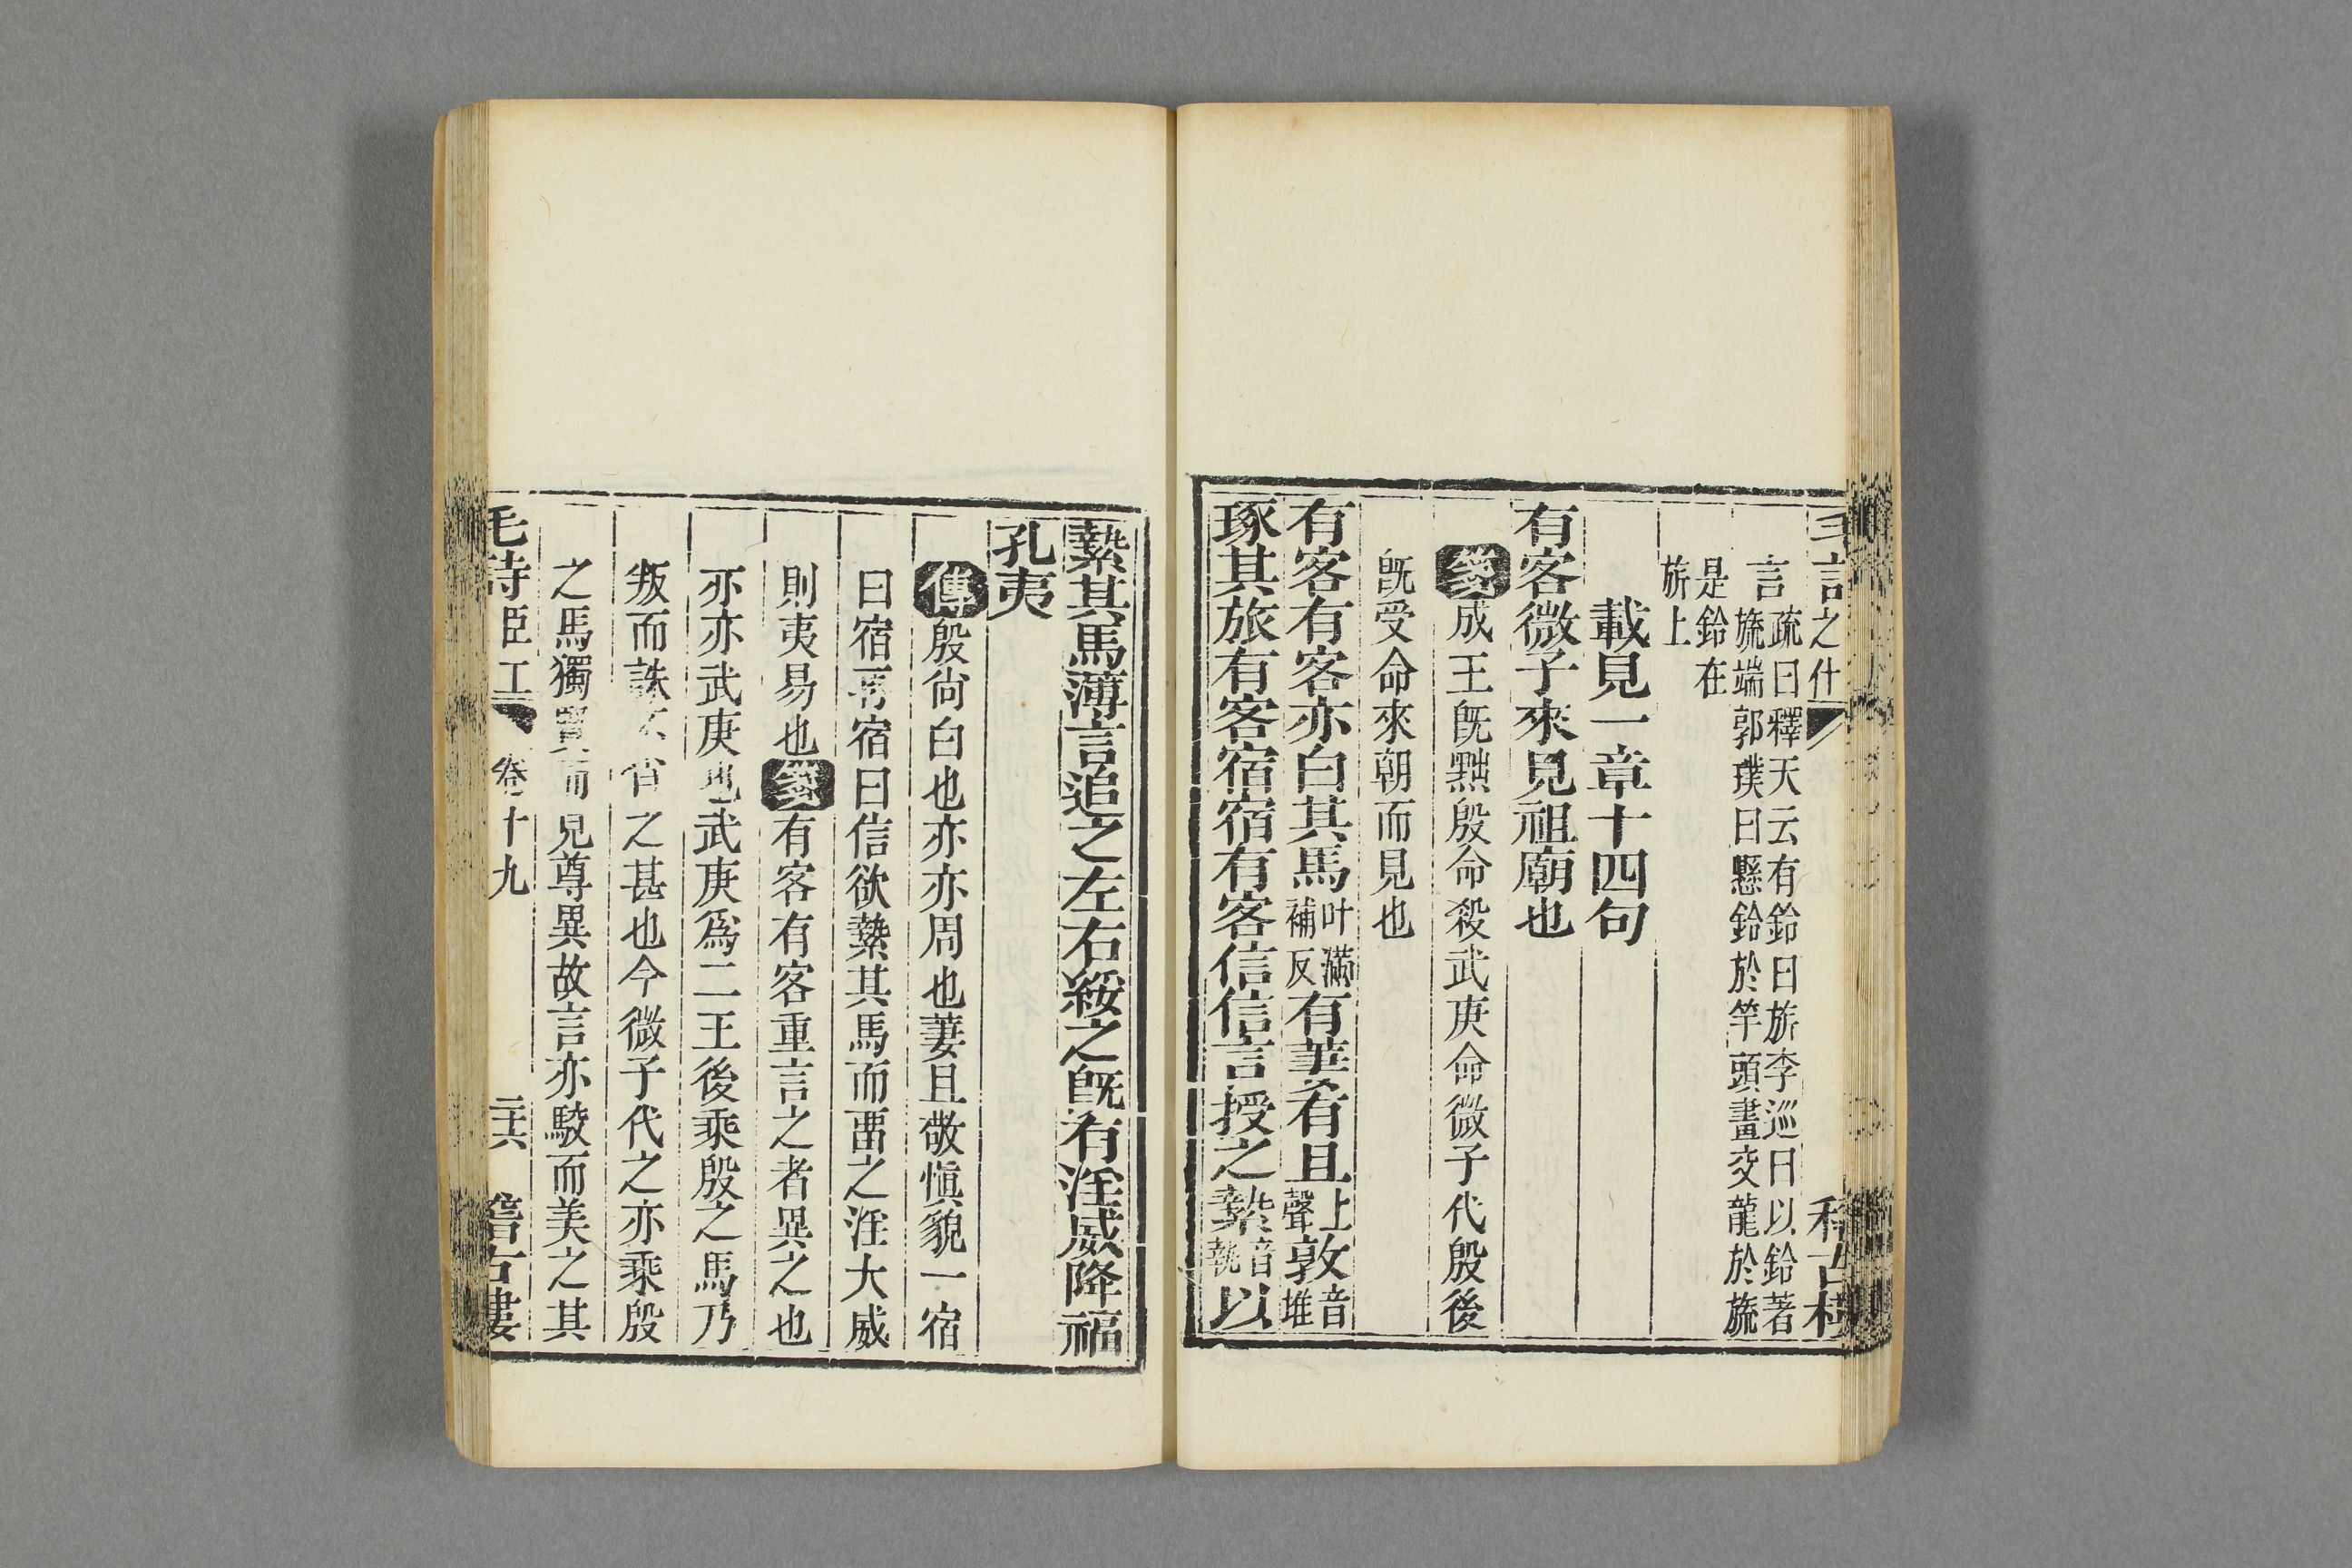 言之什 稽古樓
言疏曰釋天云有鈴曰旂李巡曰以鈴著
旒端郭璞曰懸鈴於竿頭畫交龍於旒
是鈴在
旂上
載見一章十四句
有客微子來見祖廟也
箋成王旣黜殷命殺武庚命微子代殷後
旣受命來朝而見也
有客有客亦白其馬叶滿補反有萋有且上聲敦音堆
琢其旅有客宿宿有客信信言授之縶音執以
縶其馬薄言追之左右綏之旣有淫威降福
孔夷
傳殷尙白也亦亦周也萋且敬愼貌一宿
曰宿再宿曰信欲縶其馬而畱之淫大威
則夷易也箋有客有客重言之者異之也
亦亦武庚也武庚爲二王後乘殷之馬乃
叛而誅不肖之甚也今微子代之亦乘殷
之馬獨賢而見尊異故言亦駮而美之其
毛詩臣工 卷十九 二六 稽古樓